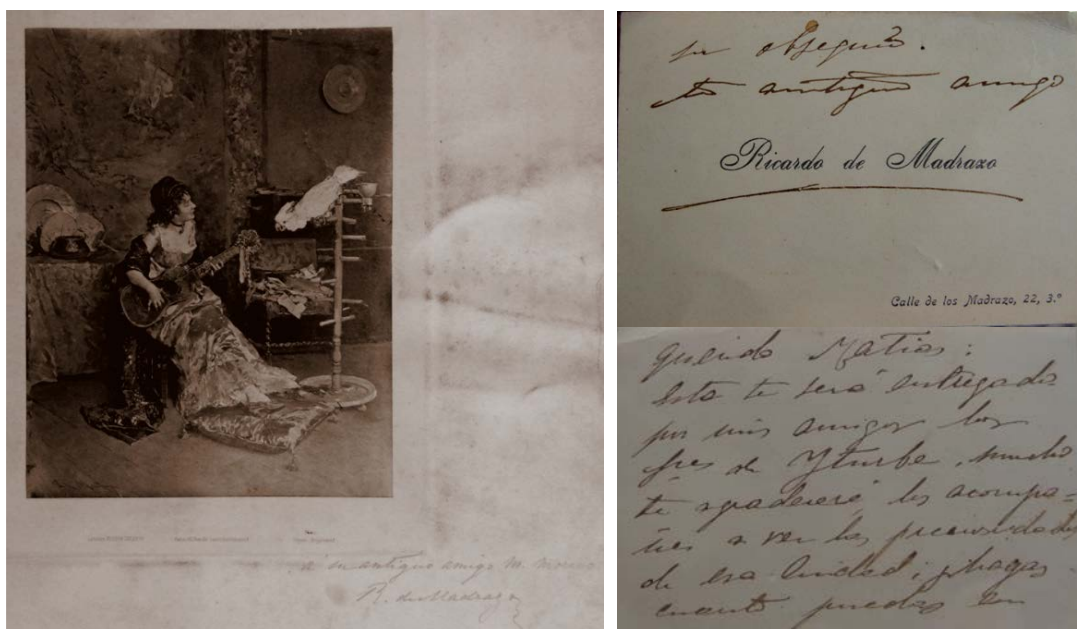 a su antiguo amigo M. Moreno
R. de Madrazo
su obsequio.
tu antiguo amigo
Ricardo de Madrazo
Calle de los Madrazo, 22, 3.º
Querido Matias:
Esta te será entregada
por mis amigos los
Sres de Yturbe, mucho
te agradeceré los acompa=
ñes a ver las preciosidades
de esa Ciudad; y hagas
cuanto puedas en